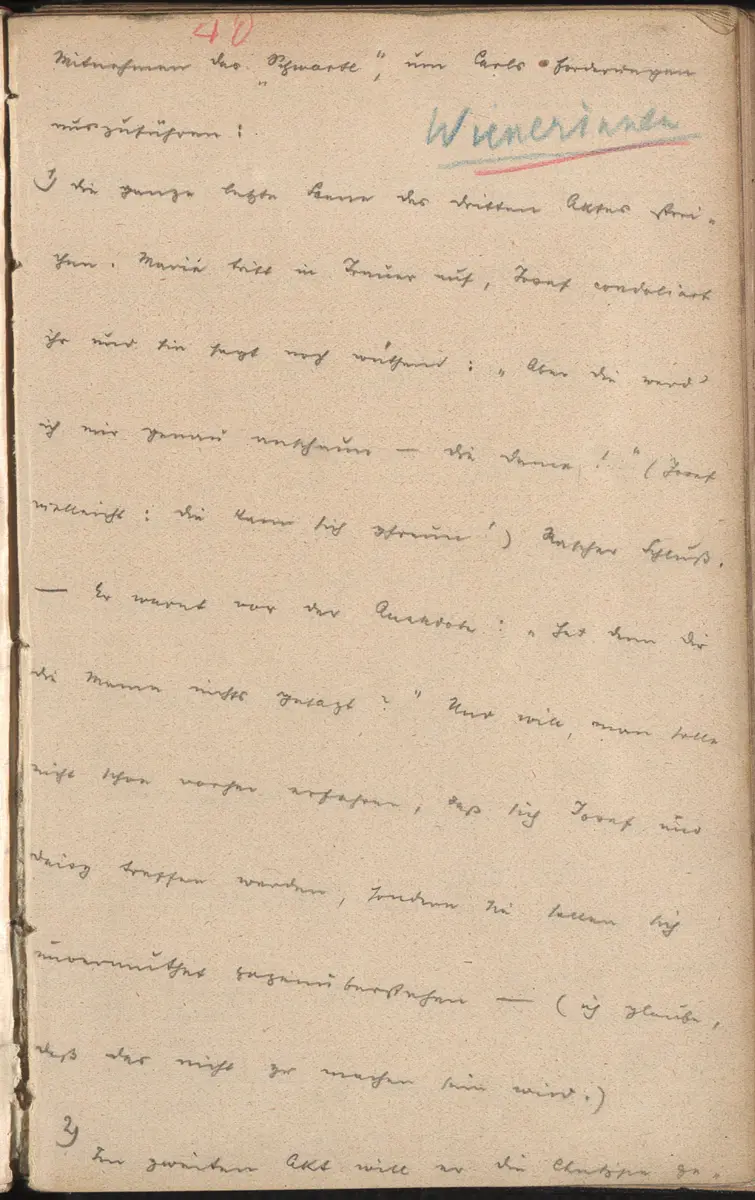 40
Mitnehmen des „Schwartl“, um Carls Forderungen
auszuführen:
Wienerinnen
1) die ganze letzte Scene des dritten Aktes strei-
chen. Marie tritt in Trauer auf, Josef condoliert
ihr und sie sagt noch wüthend: „Aber die werd'
ich mir genau anschaun — die Dame!“ (Josef
vielleicht: die kann sich gfreun!) Rascher Schluß.
— Er warnt vor der Anekdote: „Hat denn Dir
die Mama nichts gesagt?“ Und will, man solle
nicht schon vorher erfahren, daß sich Josef und
Daisy treffen werden, sondern sie sollen sich
unvermuthet gegenüberstehen — (ich glaube,
daß das nicht zu machen sein wird.)
2) Im zweiten Akt will er die ge-